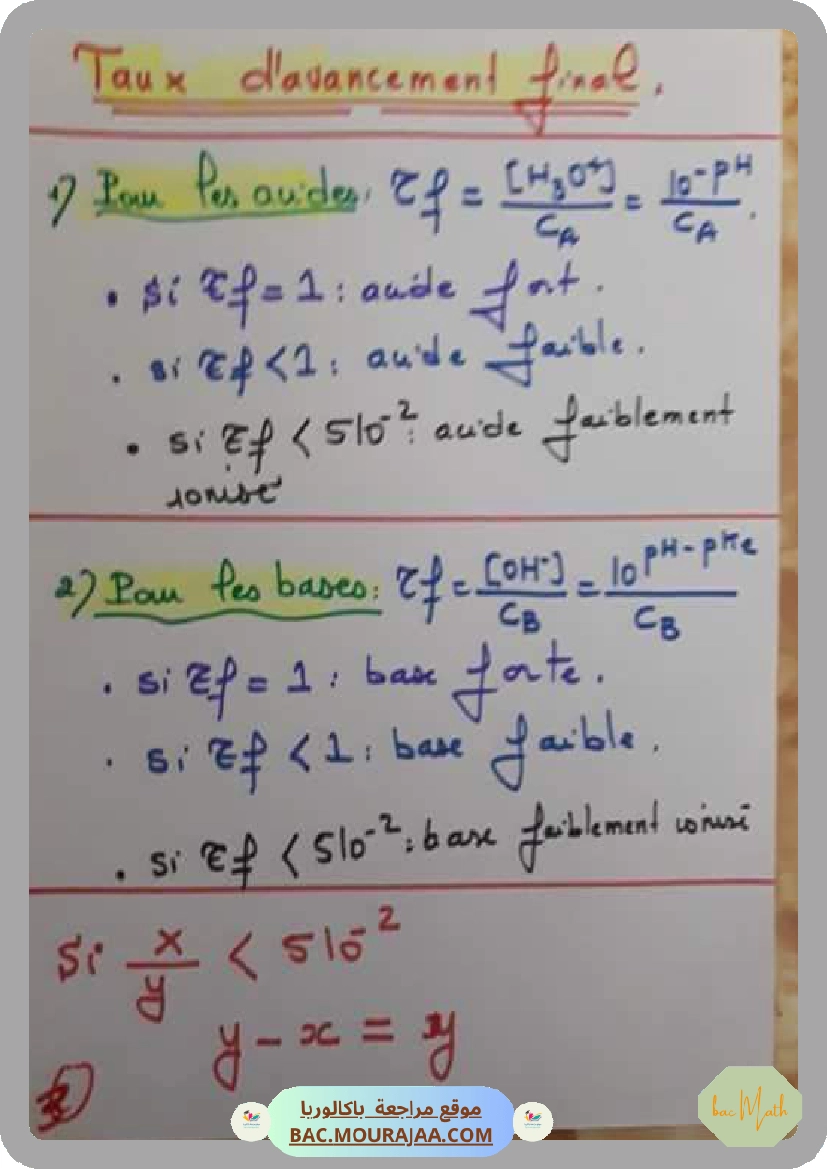 Taux d'avancement final.
1) Pour les acides: τf = [H₃O⁺]/CA = 10^-pH/CA.
• Si τf = 1 : acide fort.
• si τf < 1 : acide faible.
• si τf < 510⁻² : acide faiblement
ionisé
2) Pour les bases: τf = [OH⁻]/CB = 10^pH-pKe/CB
• si τf = 1 : base forte.
• si τf < 1 : base faible.
• si τf < 510⁻² : base faiblement ionisé
Si x/y < 510⁻²
y - x = y
موقع مراجعة باكالوريا
BAC.MOURAJAA.COM
bac Math